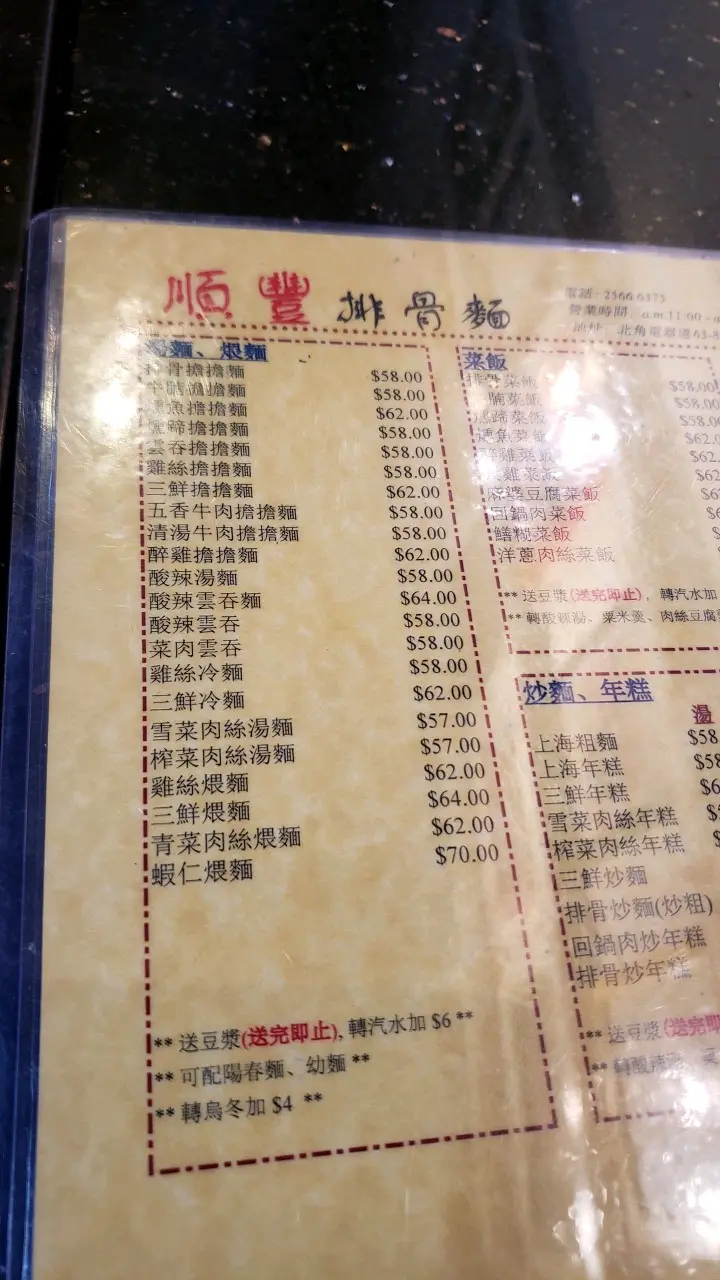 順豐排骨麵
電話：2566 6373
營業時間： a.m 11:00 -
地址： 北角電器道63-8
湯麵、煨麵
排骨擔擔麵 $58.00
牛腩擔擔麵 $58.00
燻魚擔擔麵 $62.00
燻蹄擔擔麵 $58.00
雲吞擔擔麵 $58.00
雞絲擔擔麵 $58.00
三鮮擔擔麵 $62.00
五香牛肉擔擔麵 $58.00
清湯牛肉擔擔麵 $58.00
醉雞擔擔麵 $62.00
酸辣湯麵 $58.00
酸辣雲吞麵 $64.00
酸辣雲吞 $58.00
菜肉雲吞 $58.00
雞絲冷麵 $58.00
三鮮冷麵 $62.00
雪菜肉絲湯麵 $57.00
榨菜肉絲湯麵 $57.00
雞絲煨麵 $62.00
三鮮煨麵 $64.00
青菜肉絲煨麵 $62.00
蝦仁煨麵 $70.00
** 送豆漿(送完即止), 轉汽水加 $6 **
** 可配陽春麵、幼麵 **
** 轉烏冬加 $4 **
菜飯
排骨菜飯 $58.00
腩菜飯 $58.00
燻蹄菜飯 $58.0
燻魚菜飯 $62.
雞菜飯 $62.
雞菜飯 $62
麻婆豆腐菜飯 $6
回鍋肉菜飯 $6
鱔糊菜飯 $
洋蔥肉絲菜飯
** 送豆漿(送完即止)，轉汽水加
** 轉酸辣湯、粟米羹、肉絲豆腐
炒麵、年糕
湯
上海粗麵 $58
上海年糕 $58
三鮮年糕 $6
雪菜肉絲年糕
榨菜肉絲年糕
三鮮炒麵
排骨炒麵(炒粗)
回鍋肉炒年糕
排骨炒年糕
** 送豆漿(送完即
** 轉酸辣湯、